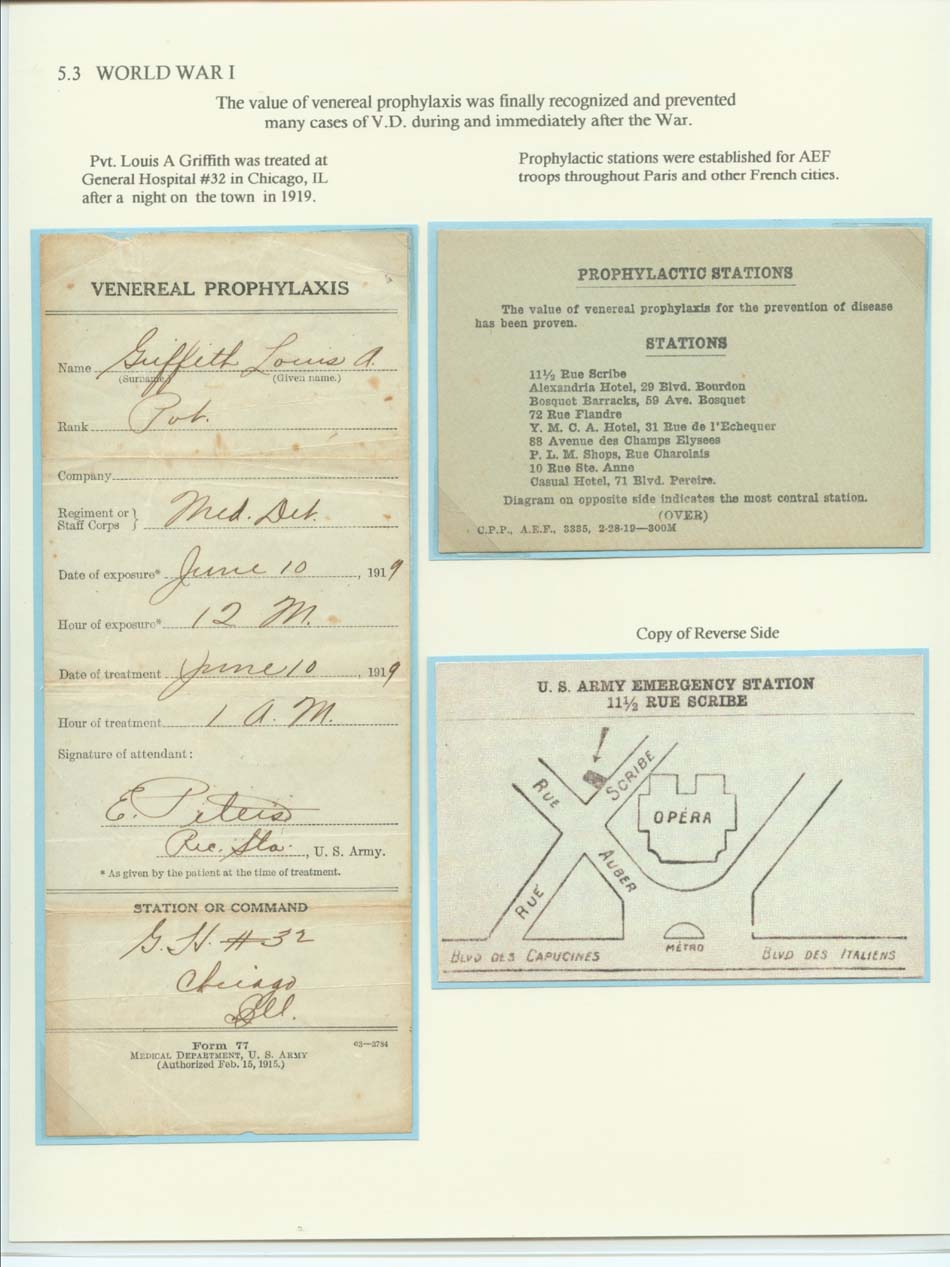 5.3 WORLD WAR I
The value of venereal prophylaxis was finally recognized and prevented
many cases of V.D. during and immediately after the War.
Pvt. Louis A Griffith was treated at
General Hospital #32 in Chicago, IL
after a night on the town in 1919.
Prophylactic stations were established for AEF
troops throughout Paris and other French cities.
VENEREAL PROPHYLAXIS
Name Griffith Louis A.
(Surname) (Given name.)
Rank Pvt.
Company
Regiment or } Med. Det.
Staff Corps
Date of exposure* June 10, 1919
Hour of exposure* 12 M.
Date of treatment June 10, 1919
Hour of treatment 1 A. M.
Signature of attendant:
E. Peters
Rec. Sta., U. S. Army.
* As given by the patient at the time of treatment.
STATION OR COMMAND
G. H. #32
Chicago
Ill.
Form 77
MEDICAL DEPARTMENT, U. S. ARMY
(Authorized Feb. 15, 1915.)
63—3784
PROPHYLACTIC STATIONS
The value of venereal prophylaxis for the prevention of disease
has been proven.
STATIONS
11½ Rue Scribe
Alexandria Hotel, 29 Blvd. Bourdon
Bosquet Barracks, 59 Ave. Bosquet
72 Rue Flandre
Y. M. C. A. Hotel, 31 Rue de l'Echequer
88 Avenue des Champs Elysees
P. L. M. Shops, Rue Charolais
10 Rue Ste. Anne
Casual Hotel, 71 Blvd. Pereire.
Diagram on opposite side indicates the most central station.
(OVER)
C.P.P., A.E.F., 3335, 2-28-19—300M
Copy of Reverse Side
U. S. ARMY EMERGENCY STATION
11½ RUE SCRIBE
RUE SCRIBE
OPÉRA
RUE AUBER
MÉTRO
BLVD DES CAPUCINES
BLVD DES ITALIENS